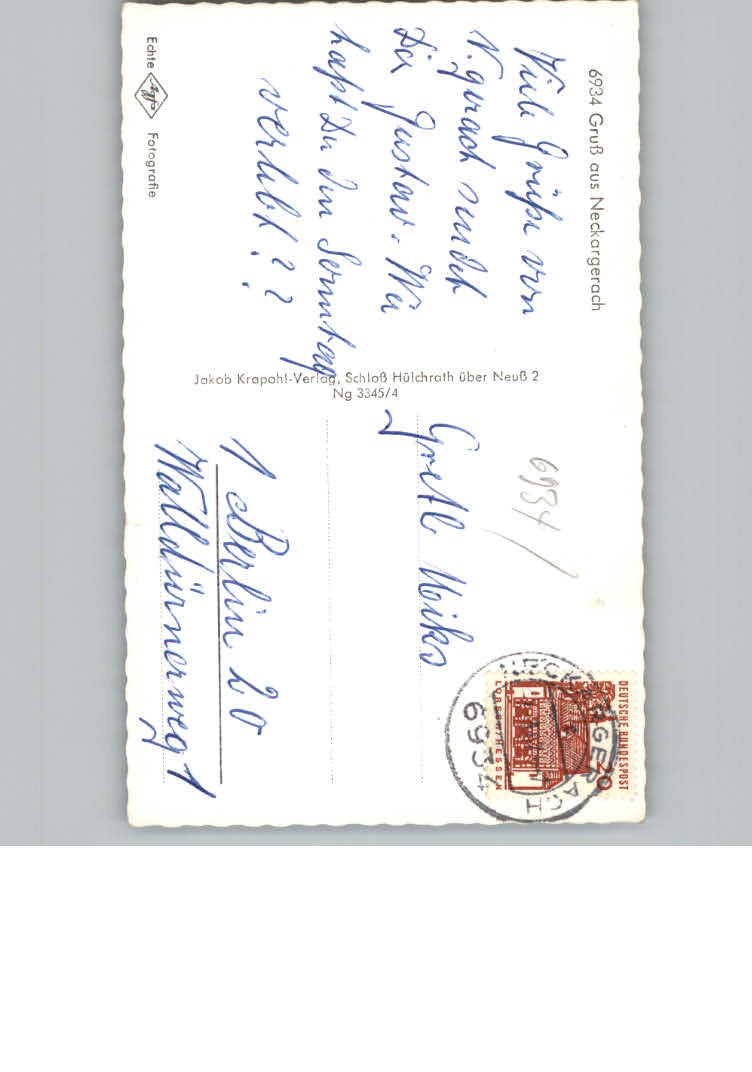 6934 Gruß aus Neckargerach
Viele Grüße von
N.gerach sendet
Dir Gustav. Wie
hast Du den Sonntag
verlebt??
Echte Agfa Fotografie
Jakob Krapohl-Verlag, Schloß Hülchrath über Neuß 2
Ng 3345/4
6934/
DEUTSCHE BUNDESPOST
20
LORSCH/HESSEN
NECKARGERACH
6934
Gretl
1 Berlin 20
Walldürnerweg 1